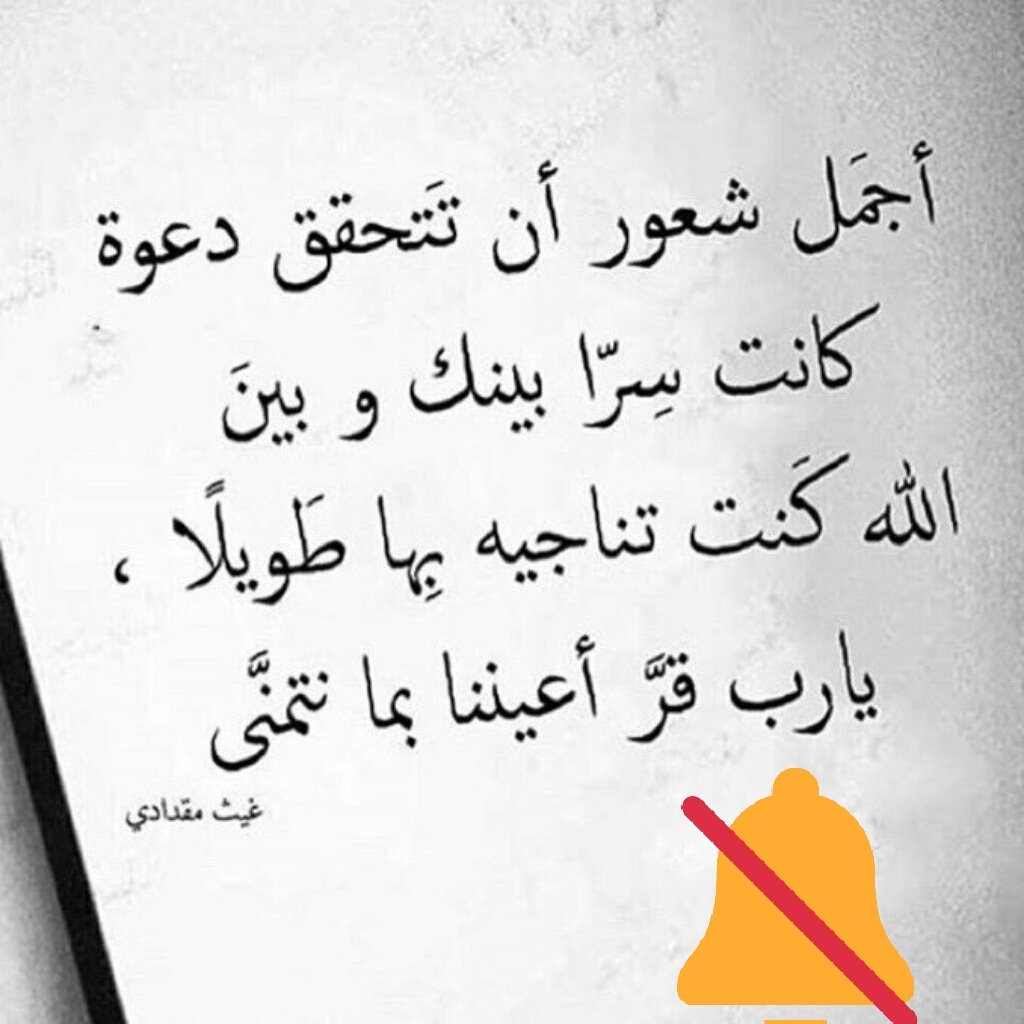 أجمَل شعور أن تَتحقق دعوة
كانت سِرّا بينك و بينَ
الله كَنت تناجيه بِها طَويلًا ،
يارب قرَّ أعيننا بما نتمنَّى
غيث مقدادي